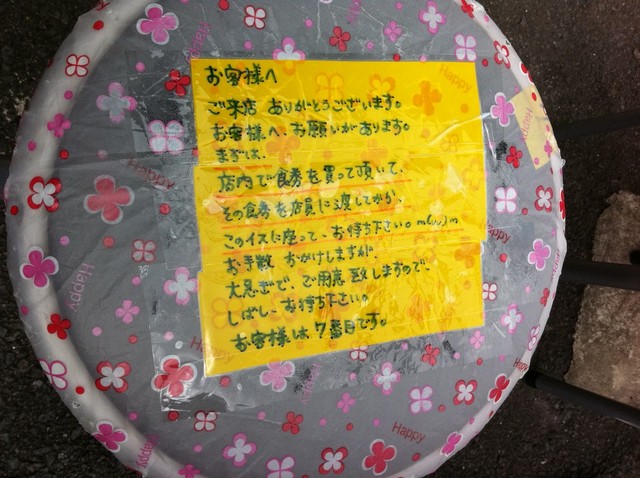 お客様へ
ご来店 ありがとうございます。
お客様へ、お願いがあります。
まずは、
店内で食券を買って頂いて、
その食券を店員に渡してから、
このイスに座って、お待ち下さい。m(_ _)m
お手数 おかけしますが、
大急ぎで、ご用意致しますので、
しばし、お待ち下さい。
お客様は 7番目です。
Happy
Happy
Happy
Happy
Happy
Happy
Happy